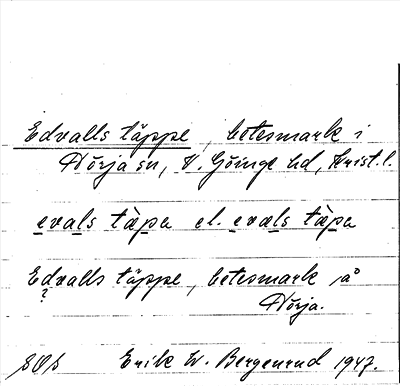 Edvalls täppe, betesmark i
Nörja sn, V. Göinge hd, Krist. l.
evals täpa el. evals täpa
Edvalls täppe, betesmark på
?
Nörja.
SOS Erik W. Bergenrud 1947.